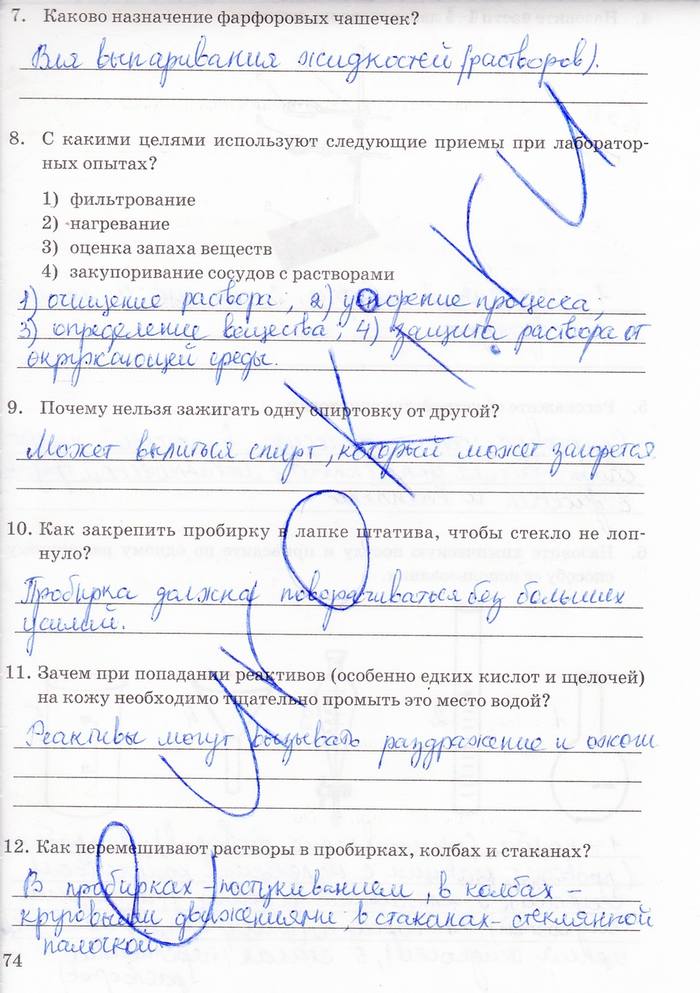 7. Каково назначение фарфоровых чашечек?
Для выпаривания жидкостей (растворов).
8. С какими целями используют следующие приемы при лаборатор-
ных опытах?
1) фильтрование
2) нагревание
3) оценка запаха веществ
4) закупоривание сосудов с растворами
1) очищение раствора; 2) ускорение процесса;
3) определение вещества; 4) защита раствора от
окружающей среды.
9. Почему нельзя зажигать одну спиртовку от другой?
Может вылиться спирт, который может загорется
10. Как закрепить пробирку в лапке штатива, чтобы стекло не лоп-
нуло?
Пробирка должна поворачиваться без больших
усилий.
11. Зачем при попадании реактивов (особенно едких кислот и щелочей)
на кожу необходимо тщательно промыть это место водой?
Реактивы могут вызывать раздражение и ожоги
12. Как перемешивают растворы в пробирках, колбах и стаканах?
В пробирках - постукиванием, в колбах -
круговыми движениями, в стаканах - стеклянной
палочкой
74